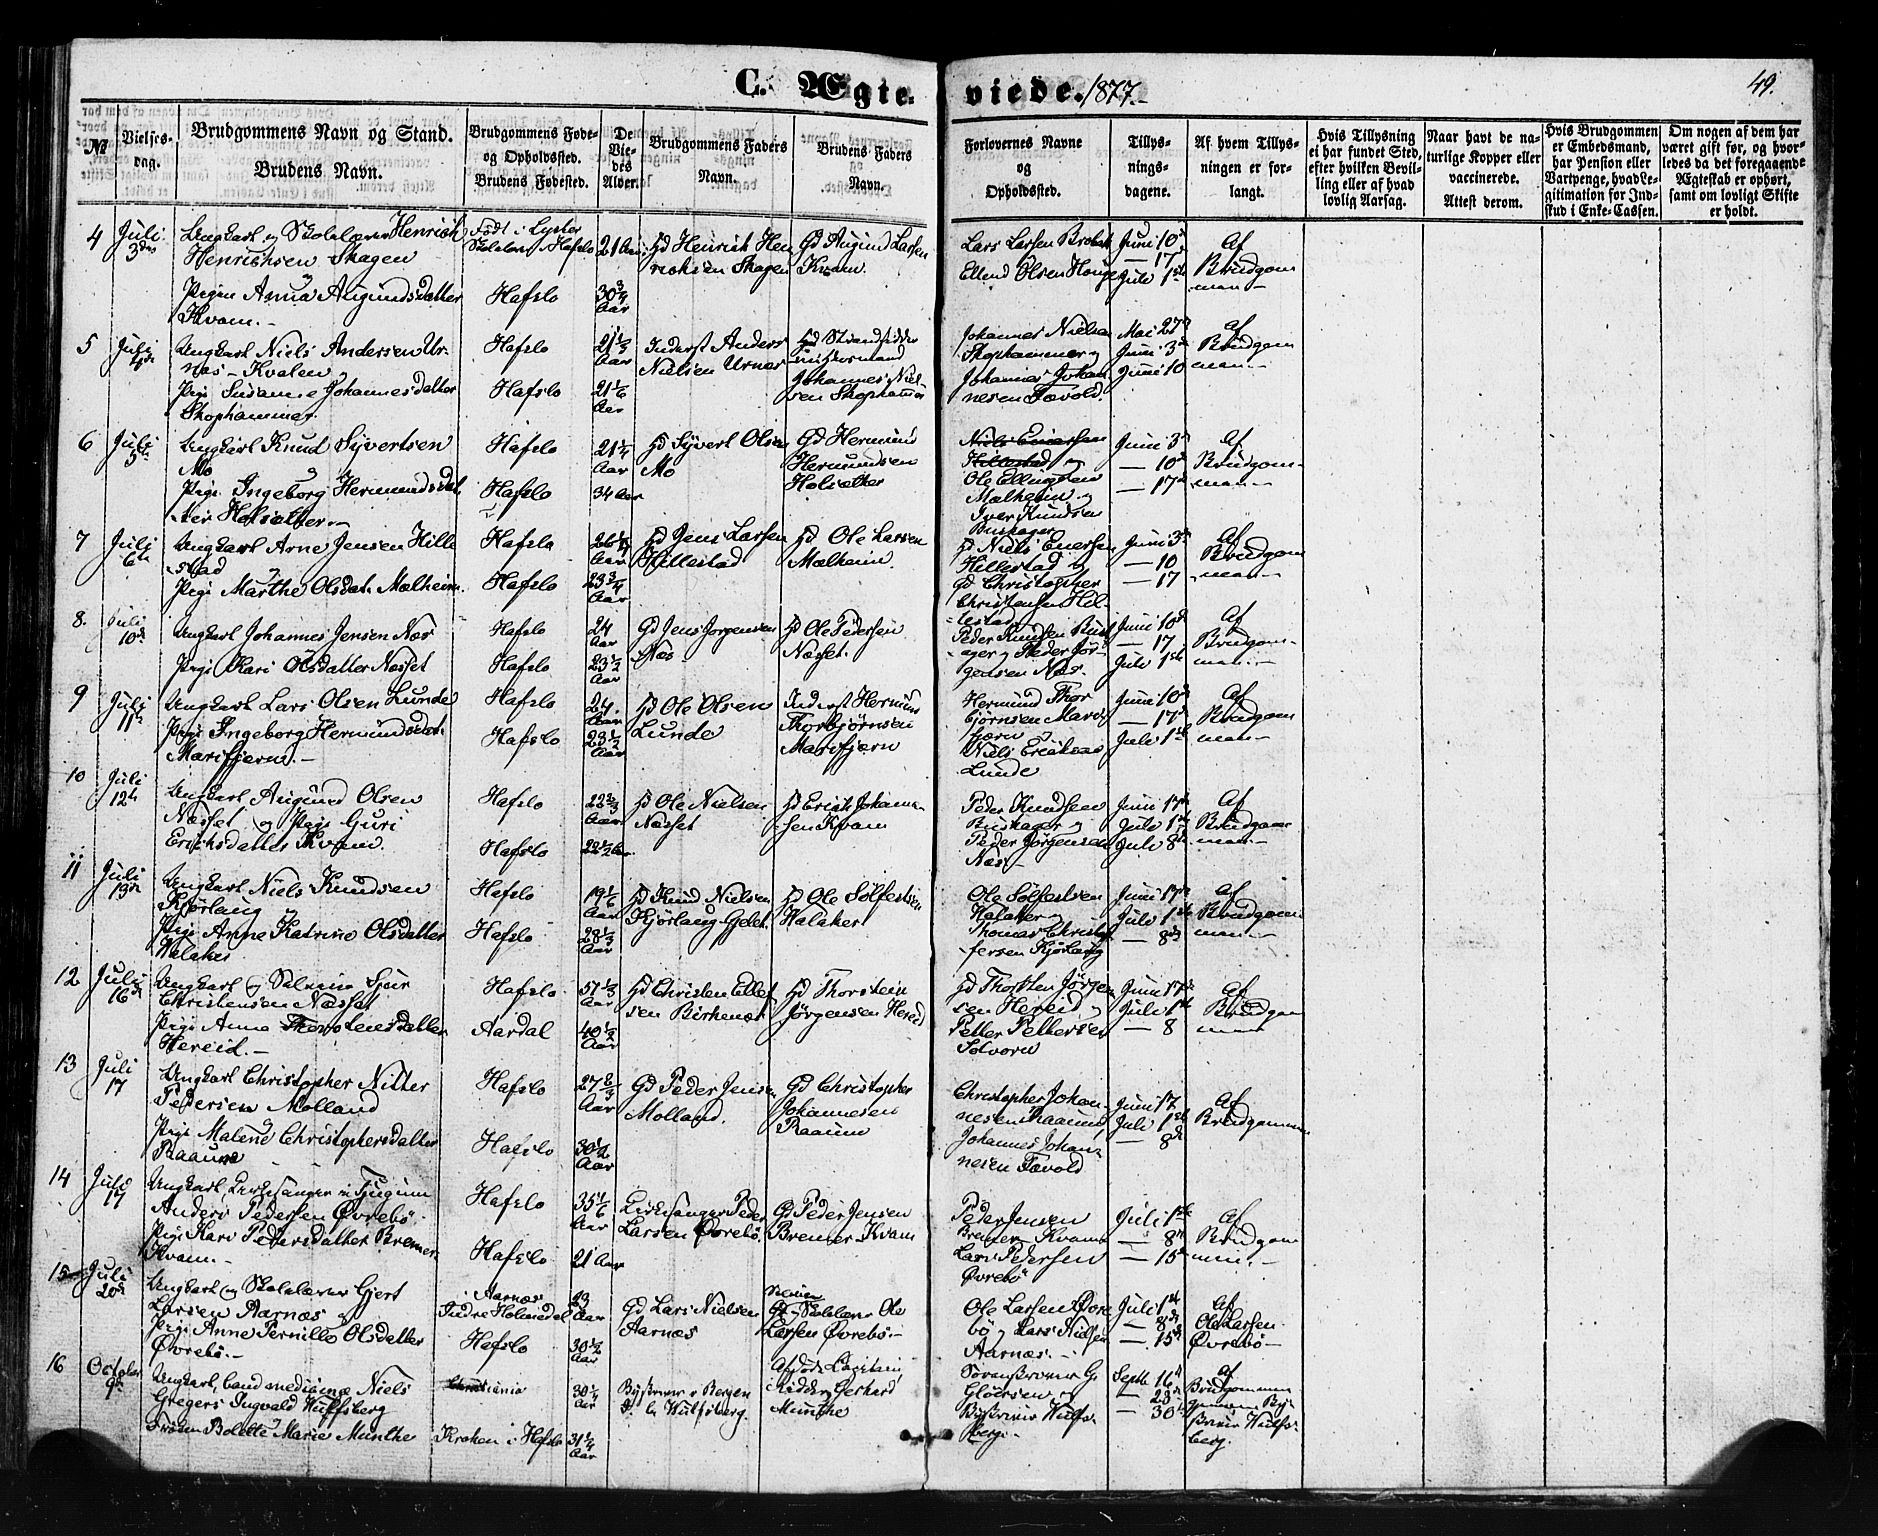 C. Ægte-
viede. 1877.
49.
№
Vielses-
dag.
Brudgommens Navn og Stand.
Brudens Navn.
Brudgommens Føde-
og Opholdssted.
Brudens Fødested.
De
Vie-
des
Alder.
Brudgommens Faders
Navn.
Brudens Faders
Navn.
Forlovernes Navne
og
Opholdssted.
Tillys-
nings-
dagene.
Af hvem Tillys-
ningen er for-
langt.
Hvis Tillysning
ei har fundet Sted,
efter hvilken Bevil-
ling eller af hvad
lovlig Aarsag.
Naar havt de na-
turlige Kopper eller
vaccinerede.
Attest derom.
Hvis Brudgommen
er Embedsmand,
har Pension eller
Vartpenge, hvad Le-
gitimation for Ind-
skud i Enke-Cassen.
Om nogen af dem har
været gift før, og hvor-
ledes da det foregaaende
Ægteskab er ophørt,
samt om lovligt Skifte
er holdt.
4 Juli 3die
Ungkarl og Skolelærer Henrich
Henrichsen Skagen
Pigen Anna Augundsdatter
Kvam.
Født i Lyster
Skolelærer i Hafslo
Hafslo
21 Aar
30 3/4 Aar
Gd Henrich Hen
richsen Skagen
Gd Augund Larsen
Kvam.
Lars Larsen
Ellend Olsen Hauge
Juni 10de
— 17
Juli 1ste
Af
Brudgom
man.
5 Juli 4de
Ungkarl Niels Andersen Ur-
næs-Kvalen
Pige Susanne Johannesdatter
Skophammer
Hafslo
Hafslo
21 1/3 Aar
21 1/6 Aar
Inderst Anders
Nielsen Urnæs
Gd Strandsidder
Johannes Niel-
sen Skophammer
Johannes Nielsen
Skophammer og
Johannes Johan
nesen Fævold.
Mai 27de
Juni 3die
Juni 10
Af
Brudgom
man.
6 Juli 5te
Ungkarl Knud Syvertsen
Mo
Pige Ingeborg Hermundsdat
ter Holsæther
Hafslo
Hafslo
21 1/4 Aar
34 Aar
Gd Syvert Olsen
Mo
Gd Hermund
Hermundsen
Holsæther
Niels Enersen
Hillestad og
Ole Ellingsen
Malheim og
Iver Knudsen
Buskager
Juni 3die
— 10de
— 17de
Af
Brudgom-
man
7 Juli 6te
Ungkarl Arne Jensen Hille
stad
Pige Marthe Olsdat. Malheim.
Hafslo
Hafslo
Aar
23 3/4 Aar
Gd Jens Larsen
Hillestad
Gd Ole Larsen
Malheim.
Gd Niels Enersen
Hillestad og
Gd Christopher
Christensen Hil-
lestad
Juni 3die
— 10
— 17
Af
Brudgom
man
8. Juli 10de
Ungkarl Johannes Jensen Næs
Pige Kari Olsdatter Næsset
Hafslo
Hafslo
24 Aar
23 1/2 Aar
Gd Jens Jørgensen
Næs
Gd Ole Pedersen
Næsset.
Peder Knudsen Busk
ager og Peder Jør-
gensen Næs
Juni 10de
— 17
Juli 1ste
Af
Brudgom-
man.
9 Juli 11te
Ungkarl Lars Olsen Lunde
Pige Ingeborg Hermundsdat.
Marifjæren.
Hafslo
Hafslo
24 Aar
23 1/2 Aar
Gd Ole Olsen
Lunde
Inderst Hermund
Thorbjørnsen
Marifjærn
Hermund Thor
bjørnsen Mari-
fjærn og
Niels Ericksen
Lunde
Juni 10de
— 17de
Juli 1ste
Af
Brudgom
man.
10 Juli 12te
Ungkarl Augund Olsen
Næsset og Pige Guri
Ericksdatter Kvam.
Hafslo
Hafslo
22 2/3 Aar
22 1/2 Aar
Gd Ole Nielsen
Næsset
Gd Erich Johanne-
sen Kvam
Peder Knudsen
Buskager og
Peder Jørgensen
Næs
Juni 17de
Juli 1ste
Juli 8de
Af
Brudgom
man.
11 Juli 13de
Ungkarl Niels Knudsen
Kjørlaug
Pige Anne Katrine Olsdatter
Walaker
Hafslo
Hafslo
19 1/6 Aar
28 1/3 Aar
Gd Knud Nielsen
Kjørlaug
Gd Ole Solfestsen
Walaker
Ole Solfestsen
Walaker og
Thomas Christof
fersen Kjørlaug
Juni 17de
Juli 1ste
— 8de
Af
Brudgom
man.
12 Juli 16de
Ungkarl og Sjur
Christensen Næsset
Pige Anna Thorsteinsdatter
Hereid.
Hafslo
Aardal
57 1/3 Aar
40 1/2 Aar
Gd Christen Ellef
sen Birkenæs
Gd Thorstein
Jørgensen Hereid
Gd Thorsten Jørgen
sen Hereid og
Petter Pettersen
Solvorn
Juni 17de
Juli 1ste
— 8
Af
Brudgom
man
13 Juli 17
Ungkarl Christopher Nitter
Pedersen Molland
Pige Malene Christophersdatter
Raaum
Hafslo
Hafslo
27 2/3 Aar
30 1/2 Aar
Gd Peder Jensen
Molland.
Gd Christopher
Johannesen
Raaum
Christopher Johan-
nesen Raaum
Johannes Johan-
nesen Fævold
Juni 17
Juli 1ste
— 8de
Af
Brudgommen
14 Juli 17
Ungkarl, Kirkesanger i Fjugum
Anders Pedersen Øvrebø
Pige Kari Pedersdatter Bremer-
Kvam.
Hafslo
Hafslo
35 1/6 Aar
21 Aar
Kirkesanger Peder
Larsen Øvrebø.
Gd Peder Jensen
Bremer-Kvam
Peder Jensen
Bremer-Kvam
Lars Pedersen
Øvrebø
Juli 1ste
— 8de
— 15de
Af
Brudgom
men.
15 Juli 20de
Ungkarl og Skolelærer Gjert
Larsen Aarnæs
Pige Anne Pernille Olsdatter
Øvrebø.
Aarnæs i
Indre Holmedal
Hafslo
23 Aar
30 1/2 Aar
Gd Lars Nielsen
Aarnæs
Gd Skolelærer Ole
Larsen Øvrebø.
Ole Larsen Øvre
bø og Lars Nielsen
Aarnæs.
Juli 1ste
— 8de
— 15de
Af
Ole Larsen
Øvrebø
16 October 9de
Ungkarl, cand. medicinæ Niels
Gregers Ingvald Wulfsberg
Frøken Bolette Marie Munthe
Christiania
Kroken i Hafslo
30 1/4 Aar
31 1/4 Aar
Byskriver i Bergen
Wulfsberg.
Afdøde Capitain,
Ridder Gerhard
Munthe
Sorenskriver G.
Gløersen og
Byskriver Wulfs-
berg.
Septb. 16de
— 23de
— 30te
Af
Brudgommen
gjennem By-
skriver Wulfs-
berg.